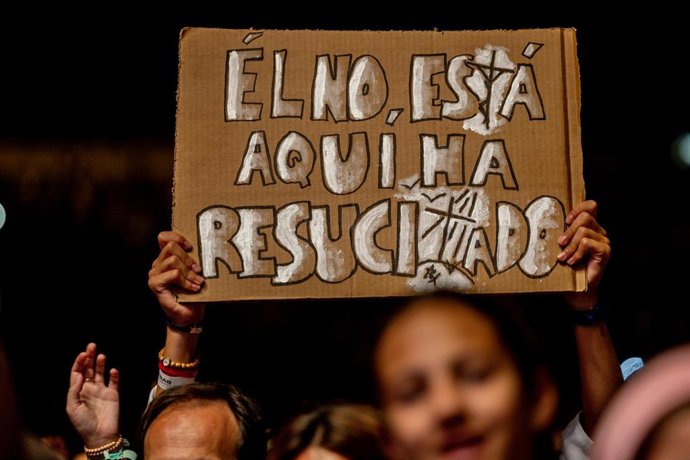 ÉL NO ESTÁ
AQUÍ HA
RESUCITADO